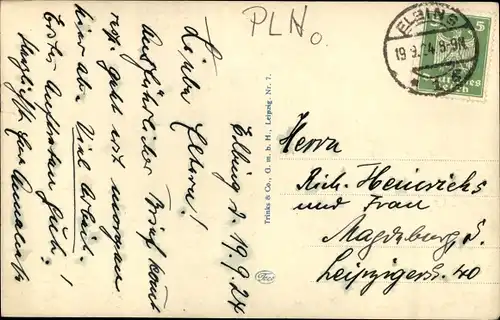 PLN
ELBING
19.9.24.8-9N.
5
Elbing d. 19.9.24
Liebe Eltern!
Ausführlicher Brief kommt
geht erst morgen
hier ab. Viel Arbeit.
Erstes Auftreten Sub.!
Herzlichst Eure
Trinks & Co., G. m. b. H., Leipzig. Nr. 7.
Herrn
Rich. Heinrichs
und Frau
Magdeburg S.
Leipzigerstr. 40